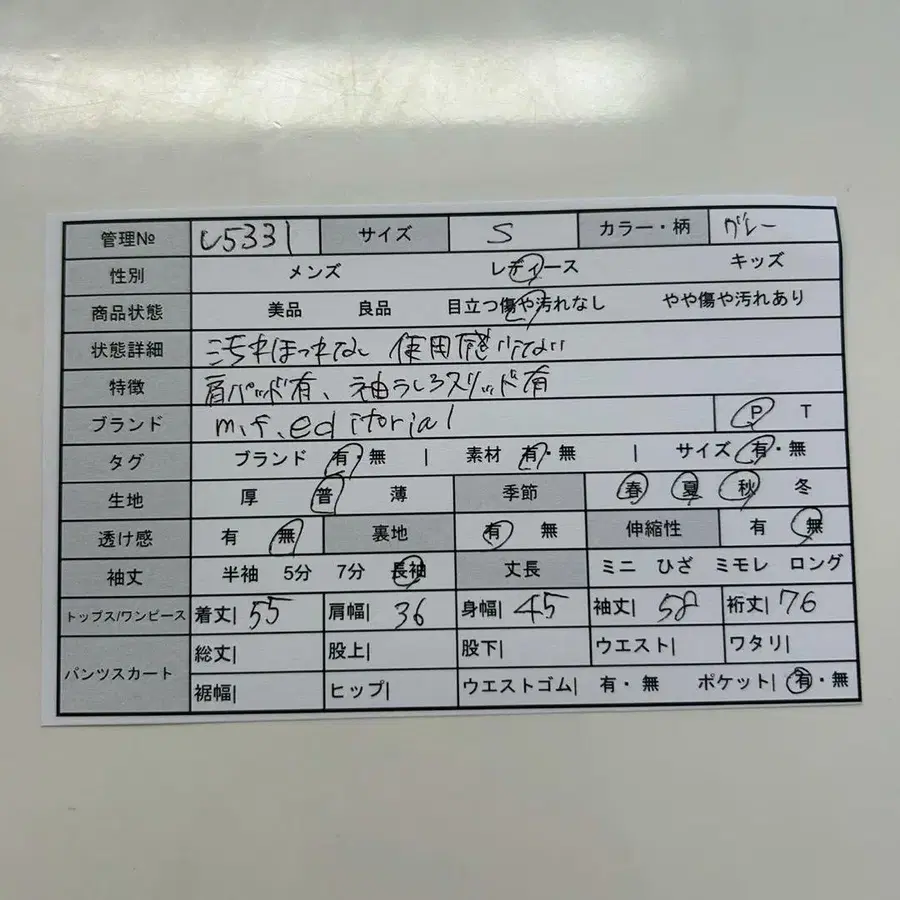 管理№ い5331 サイズ S カラー・柄 グレー
性別 メンズ レディース キッズ
商品状態 美品 良品 目立つ傷や汚れなし やや傷や汚れあり
状態詳細 汚れほつれなし 使用感少ない
特徴 肩パッド有、袖うしろスリッド有
ブランド m.f.editorial P T
タグ ブランド 有・無 | 素材 有・無 | サイズ 有・無
生地 厚 普 薄 季節 春 夏 秋 冬
透け感 有 無 裏地 有 無 伸縮性 有 無
袖丈 半袖 5分 7分 長袖 丈長 ミニ ひざ ミモレ ロング
トップス/ワンピース 着丈| 55 肩幅| 36 身幅| 45 袖丈| 58 裄丈| 76
パンツスカート 総丈| 股上| 股下| ウエスト| ワタリ|
裾幅| ヒップ| ウエストゴム| 有・無 ポケット| 有・無